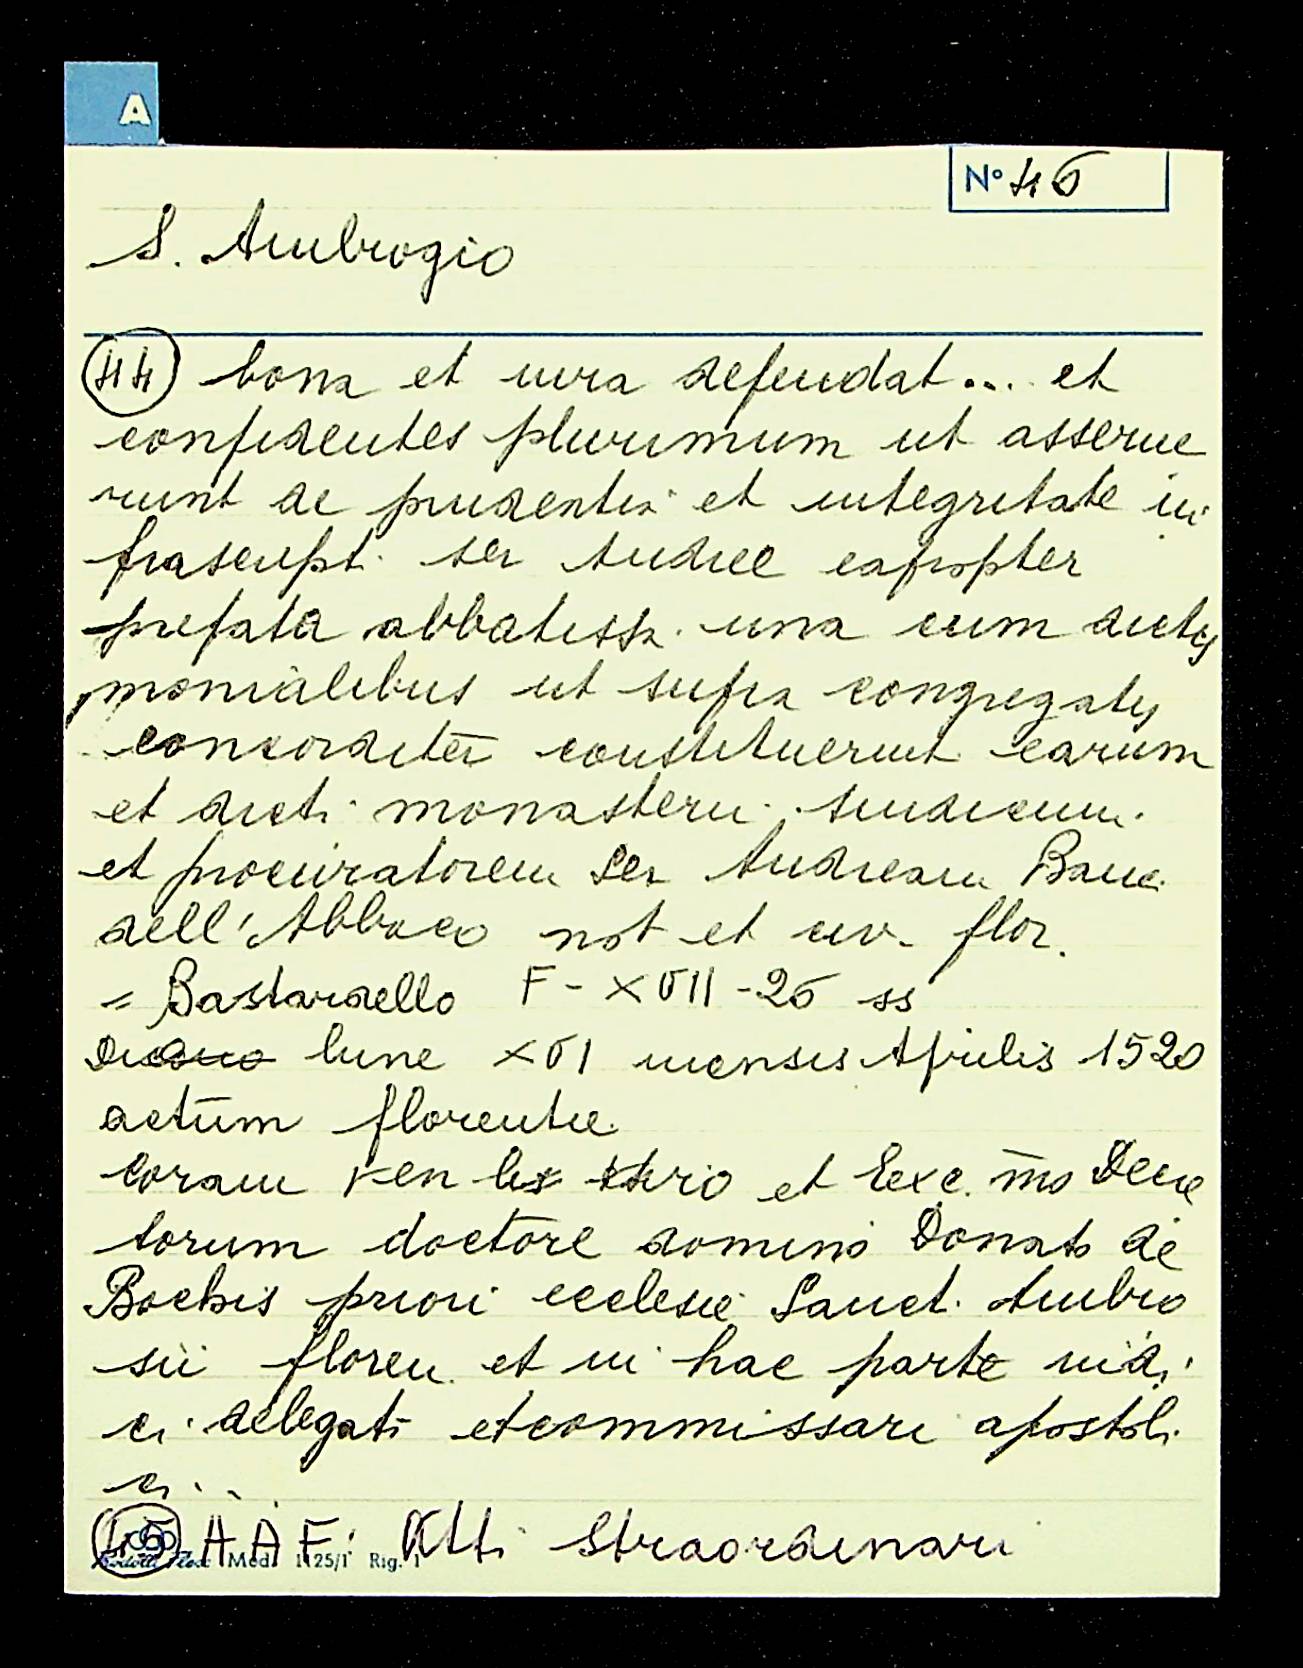 A
N° 45
S. Ambrogio
44 bona et iura defendat... et
confidentes plurimum ut asserue
runt de prudentia et integritate in
frascript. ser Andree eapropter
prefata abbatissa una cum dictis
monialibus ut supra congregatis
concorditer constituerunt earum
et dicti monasterii sindicum
et procuratorem Ser Andream
dell'Abbaco not et civ. flor.
= Bastardello F - XVII - 26 ss
lune XVI mensis Aprilis 1520
actum florentie
Coram ven et Exc. mo Decre
torum doctore domino Donato de
Bochis priori ecclesie Sanct. Ambro
sii floren. et in hac parte iudi
ci delegati et commissari apostoli
ci...
45 A A F: Atti Straordinari
Mod. 1125/1 Rig. 1